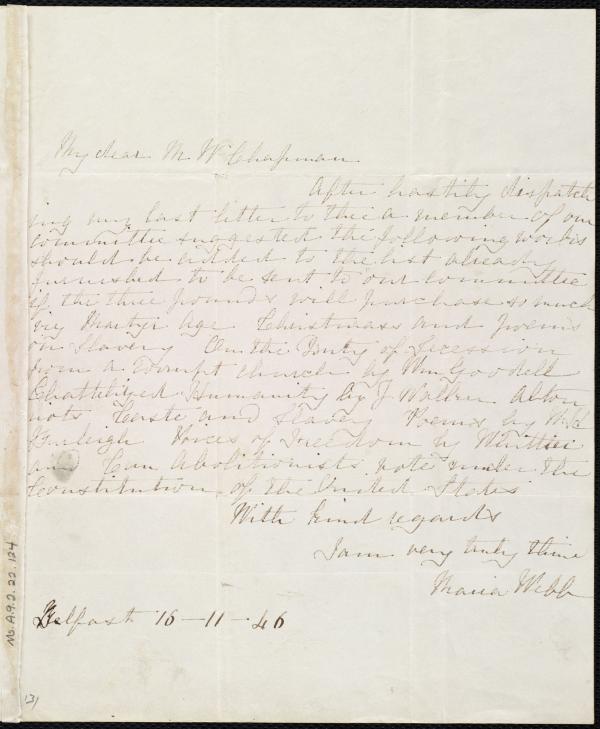 My dear M W Chapman
After hastily dispatch
ing my last letter to thee a member of our
committee suggested the following works
should be added to the list already
furnished to be sent to our committee
if the three pounds will purchase so much
viz Martyr Age Christmass and Poems
on Slavery On the Duty of Secession
from a corrupt church by Wm Goodell
Chattilized Humanity by J Walker Alton
nots Caste and Slavery Poems by
Burleigh Voices of Freedom by Whittier
and Can Abolitionists vote under the
Constitution of the United States
With kind regards
I am very truly thine
Maria Webb
Belfast 16-11-46
Ms. A.9.2.22.124
131